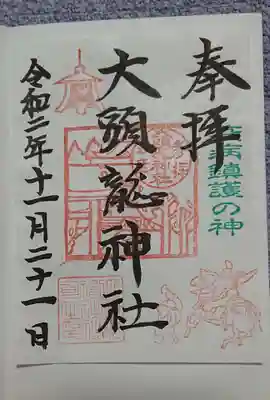 奉拝
疫病鎮護の神
大頭龍神社
令和二年十一月二十一日